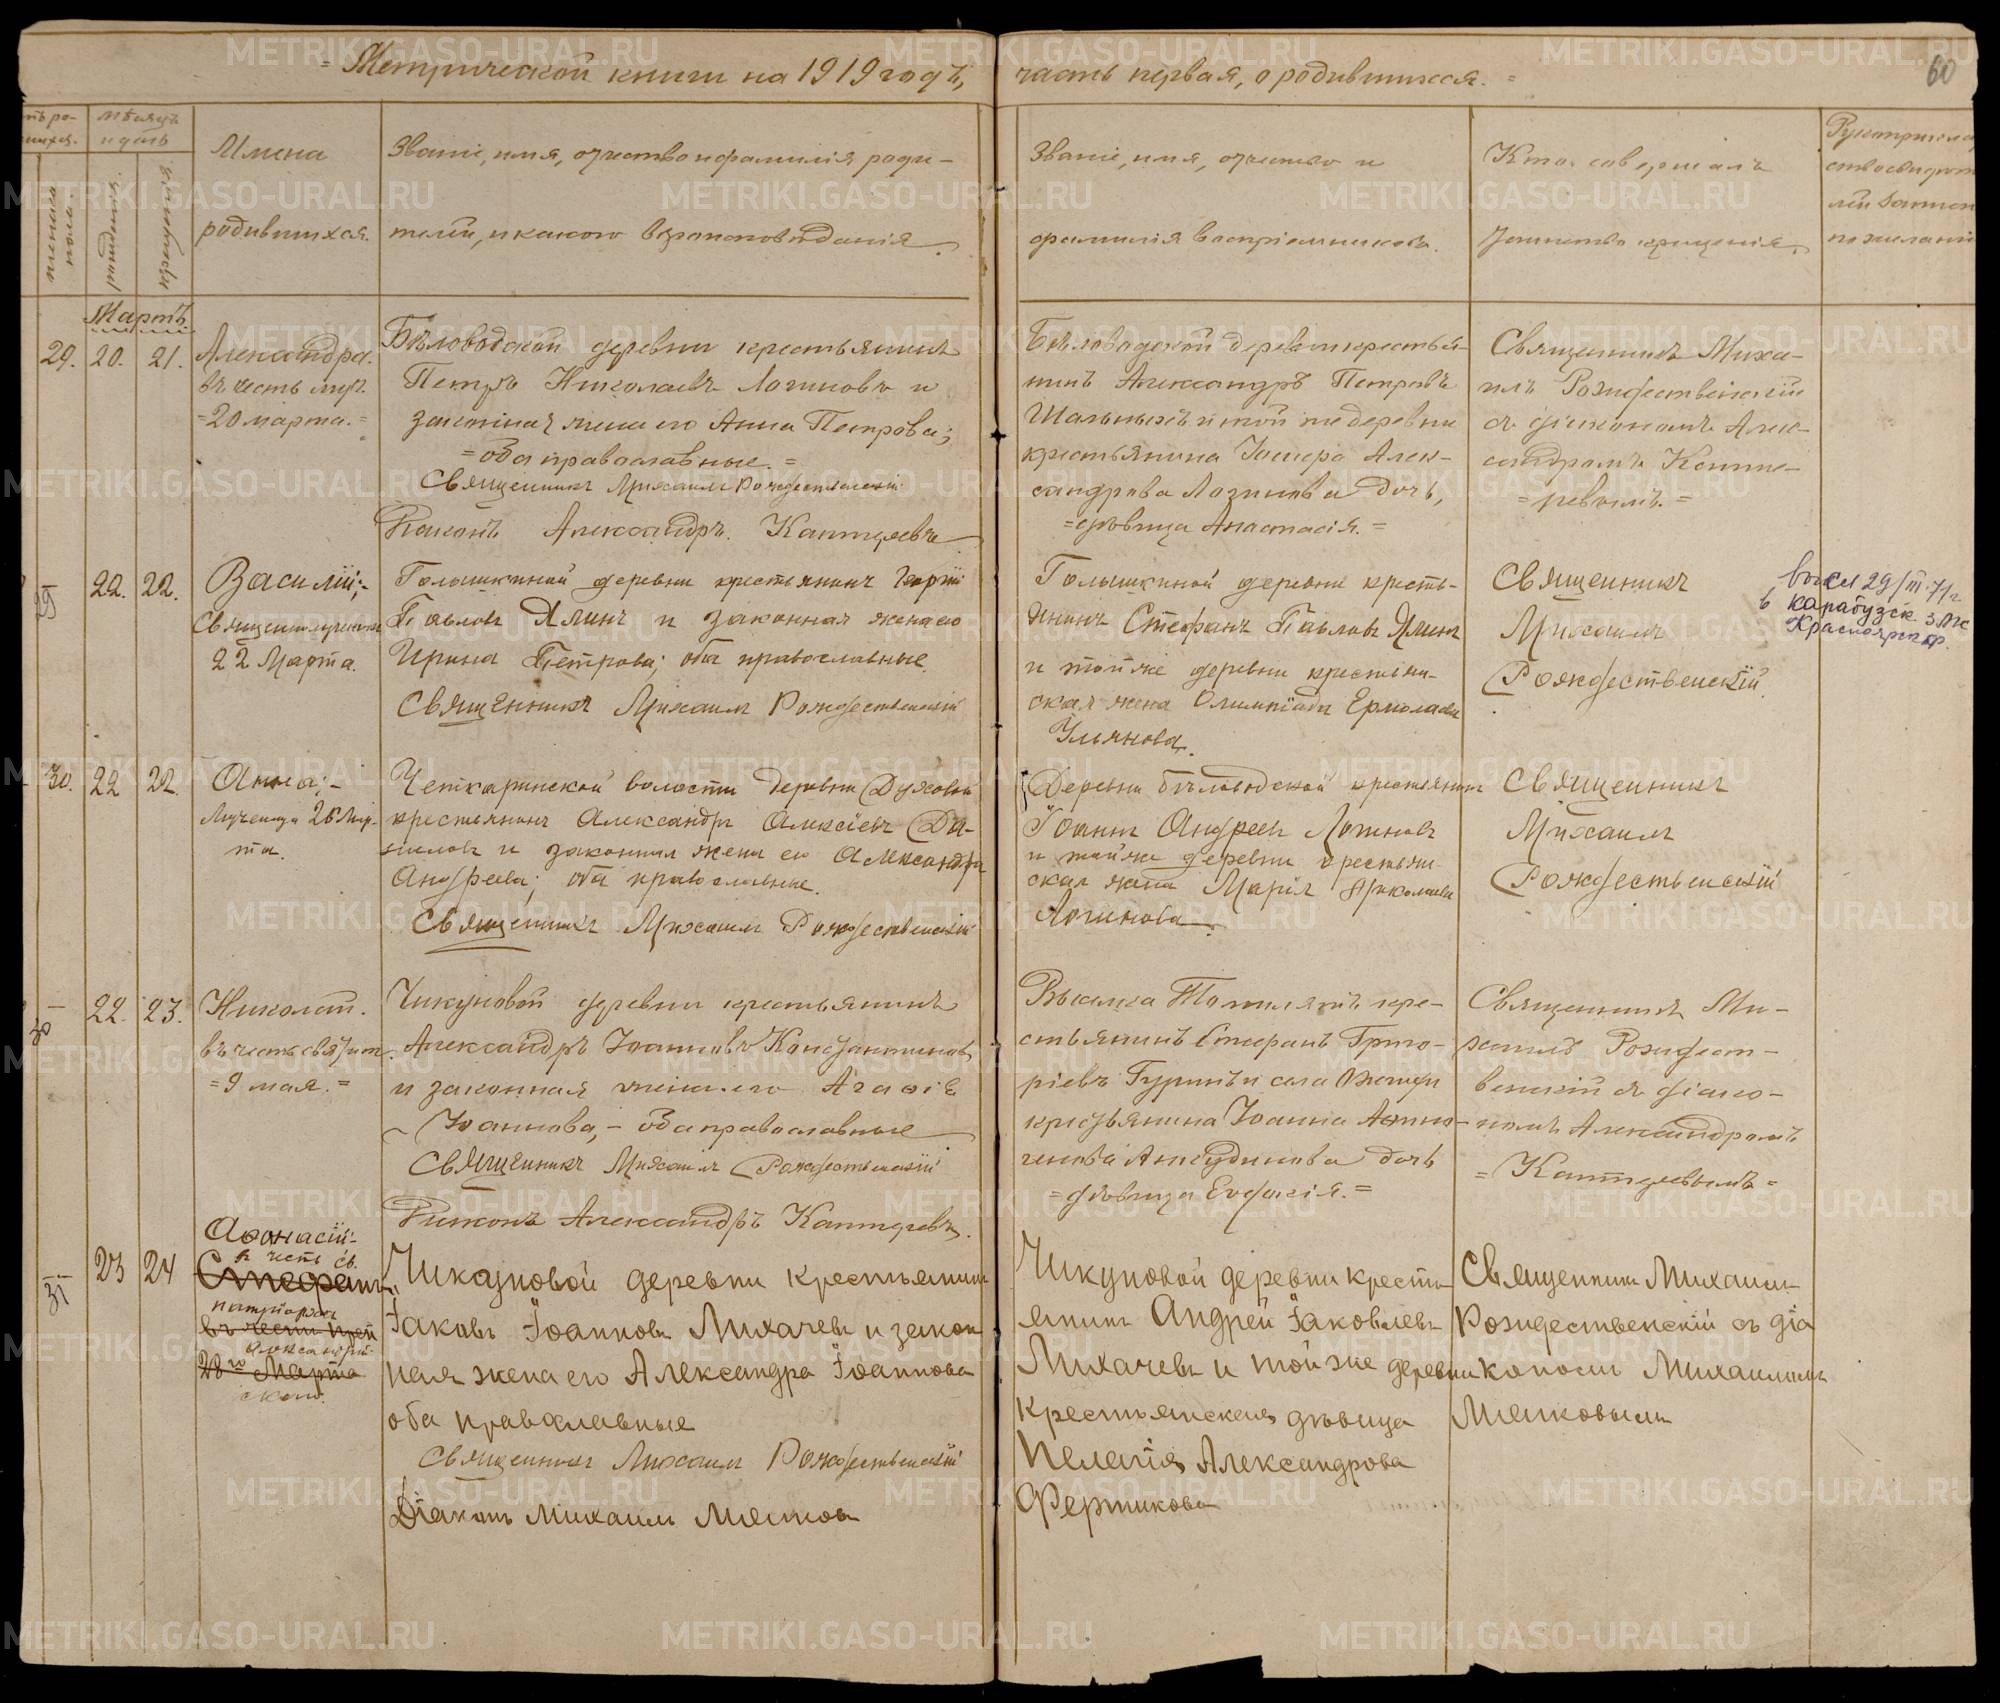 = Метрической книги на 1919 годъ, часть первая, о родившихся. =
60
мѣсяцъ
и день
женска
пола.
рожденія.
крещенія.
Имена
родившихся.
Званіе, имя, отчество и фамилія роди-
телей, и какого вѣроисповѣданія.
Званіе, имя, отчество и
фамилія воспріемниковъ.
Кто совершалъ
таинство крещенія.
Мартъ
29. 20. 21.
Александра.
въ честь муч.
=20 марта.=
Бѣловодской деревни крестьянинъ
Петръ Николаевъ Логиновъ и
законная жена его Анна Петрова;
=оба православные.=
Священникъ Михаилъ Рождественскій
Діаконъ Александръ Кантеревъ
Бѣловодской деревни крестья-
нинъ Александръ Петровъ
Шальныхъ и той же деревни
крестьянина Александрова Логинова дочь,
=дѣвица Анастасія.=
Священникъ Миха-
илъ Рождественскій
съ діакономъ Алек-
сандромъ Канте-
=ревымъ.=
29 22. 22.
Василій;-
Священномученика
22 Марта.
Голышкиной деревни крестьянинъ Георгій
Павловъ Ялинъ и законная жена его
Ирина Петрова; оба православные.
Священникъ Михаилъ Рождественскій
Голышкиной деревни кресть-
янинъ Стефанъ Павловъ Ялинъ
и той же деревни крестьян-
ская жена Олимпіада Ермолаева
Ульянова.
Священникъ
Михаилъ
Рождественскій
в Карабузск. ЗАГС
Красноярск. кр.
30. 22 22.
Анна;-
Мученица 26 Мар-
та.
Четкаринской волости деревни Духовой
крестьянинъ Александръ Алексіевъ Да-
ниловъ и законная жена его Александра
Андреева; оба православные.
Священникъ Михаилъ Рождественскій
Деревни Бѣловодской крестьянинъ
Іоаннъ Андреевъ Логиновъ
и той же деревни крестьян-
ская жена Марія Николаева
Логинова.
Священникъ
Михаилъ
Рождественскій
30 22. 23.
Николай.
въ честь святит.
=9 мая.=
Чикуновой деревни крестьянинъ
Александръ Іоанновъ Константиновъ
и законная жена его Агафія
Іоаннова,- оба православные
Священникъ Михаилъ Рождественскій
Діаконъ Александръ Кантеревъ.
Выселка кре-
стьянинъ Стефанъ Григо-
ріевъ и села
крестьянина Іоанна
дочь
=дѣвица Евфимія.=
Священникъ Ми-
хаилъ Рождест-
венскій съ діако-
номъ Александромъ
=Кантеревымъ=
31 23 24
Афонасій-
в честь св.
Стефанъ
патріарха
въ честь преп
Александрій-
28го Марта
скаго.
Чикуновой деревни крестьянинъ
Іаковъ Іоанновъ Лихачевъ и закон
ная жена его Александра Іоаннова
оба православные
Священникъ Михаилъ Рождественскій
Діаконъ Михаилъ Мягковъ
Чикуновой деревни кресть
янинъ Андрей Іаковлевъ
Лихачевъ и той же деревни
крестьянская дѣвица
Пелагія Александрова
Фертикова
Священникъ Михаилъ
Рождественскій съ діа
кономъ Михаиломъ
Мягковымъ
METRIKI.GASO-URAL.RU